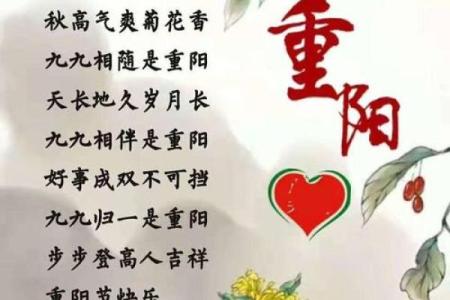 秋高气爽菊花香
九九相随是重阳
天长地久岁月长
九九相伴是重阳
好事成双不可挡
九九归一是重阳
步步登高人吉祥
重阳节快乐
重阳